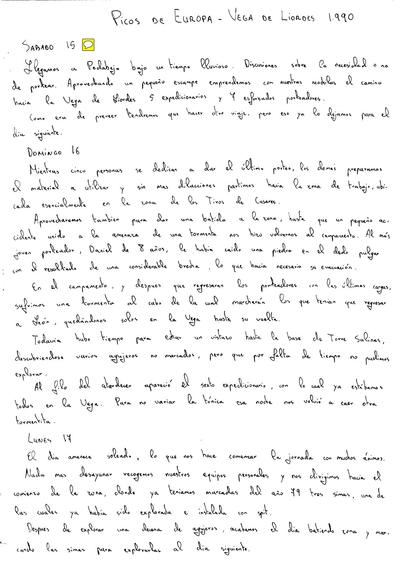 PICOS DE EUROPA - VEGA DE LIORDES 1990
SABADO 15
Llegamos a Posada bajo un tiempo lluvioso. Discusiones sobre la necesidad o no
de portear. Aprovechando un pequeño escampe emprendemos con nuestras mochilas el camino
hacia la Vega de Liordes 5 expedicionarios y 4 esforzados porteadores.
Como era de preveer tendremos que hacer otro viaje, pero eso ya lo dejamos para el
dia siguiente.
DOMINGO 16
Mientras cinco personas se dedican a dar el último porteo, los demas preparamos
el material a utilizar y sin mas dilacciones partimos hacia la zona de trabajo, ubi-
cada esencialmente en la zona de los Tiros de Casares.
Aprovecharemos tambien para dar una batida a la zona, hasta que un pequeño ac-
cidente unido a la amenaza de una tormenta nos hizo volvernos al campamento. Al más
joven porteador, Daniel de 8 años, le habia caido una piedra en el dedo pulgar
con el resultado de una considerable brecha, lo que hacia necesario su evacuación.
En el campamento, y despues que regresaran los porteadores con las últimas cargas,
sufrimos una tormenta al cabo de la cual marcharán los que tenian que regresar
a León, quedándonos solos en la Vega hasta su vuelta.
Todavia hubo tiempo para echar un vistazo hasta la base de Torre Salinas,
descubriendose varios agujeros no marcados, pero que por falta de tiempo no pudimos
explorar.
Al filo del atardecer apareció el sexto expedicionario, con lo cual ya estabamos
todos en la Vega. Para no variar la tónica esa noche nos volvió a caer otra
tormentita.
LUNES 17
El dia amanece soleado, lo que nos hace comenzar la jornada con muchos ánimos.
Nada mas desayunar recogemos nuestros equipos personales y nos dirigimos hacia el
comienzo de la zona, donde ya teniamos marcadas del año 79 tres simas, una de
las cuales ya habia sido explorada e instalada con spit.
Despues de explorar una decena de agujeros, acabamos el dia batiendo zona y mar-
cando las simas para explorarlas al dia siguiente.